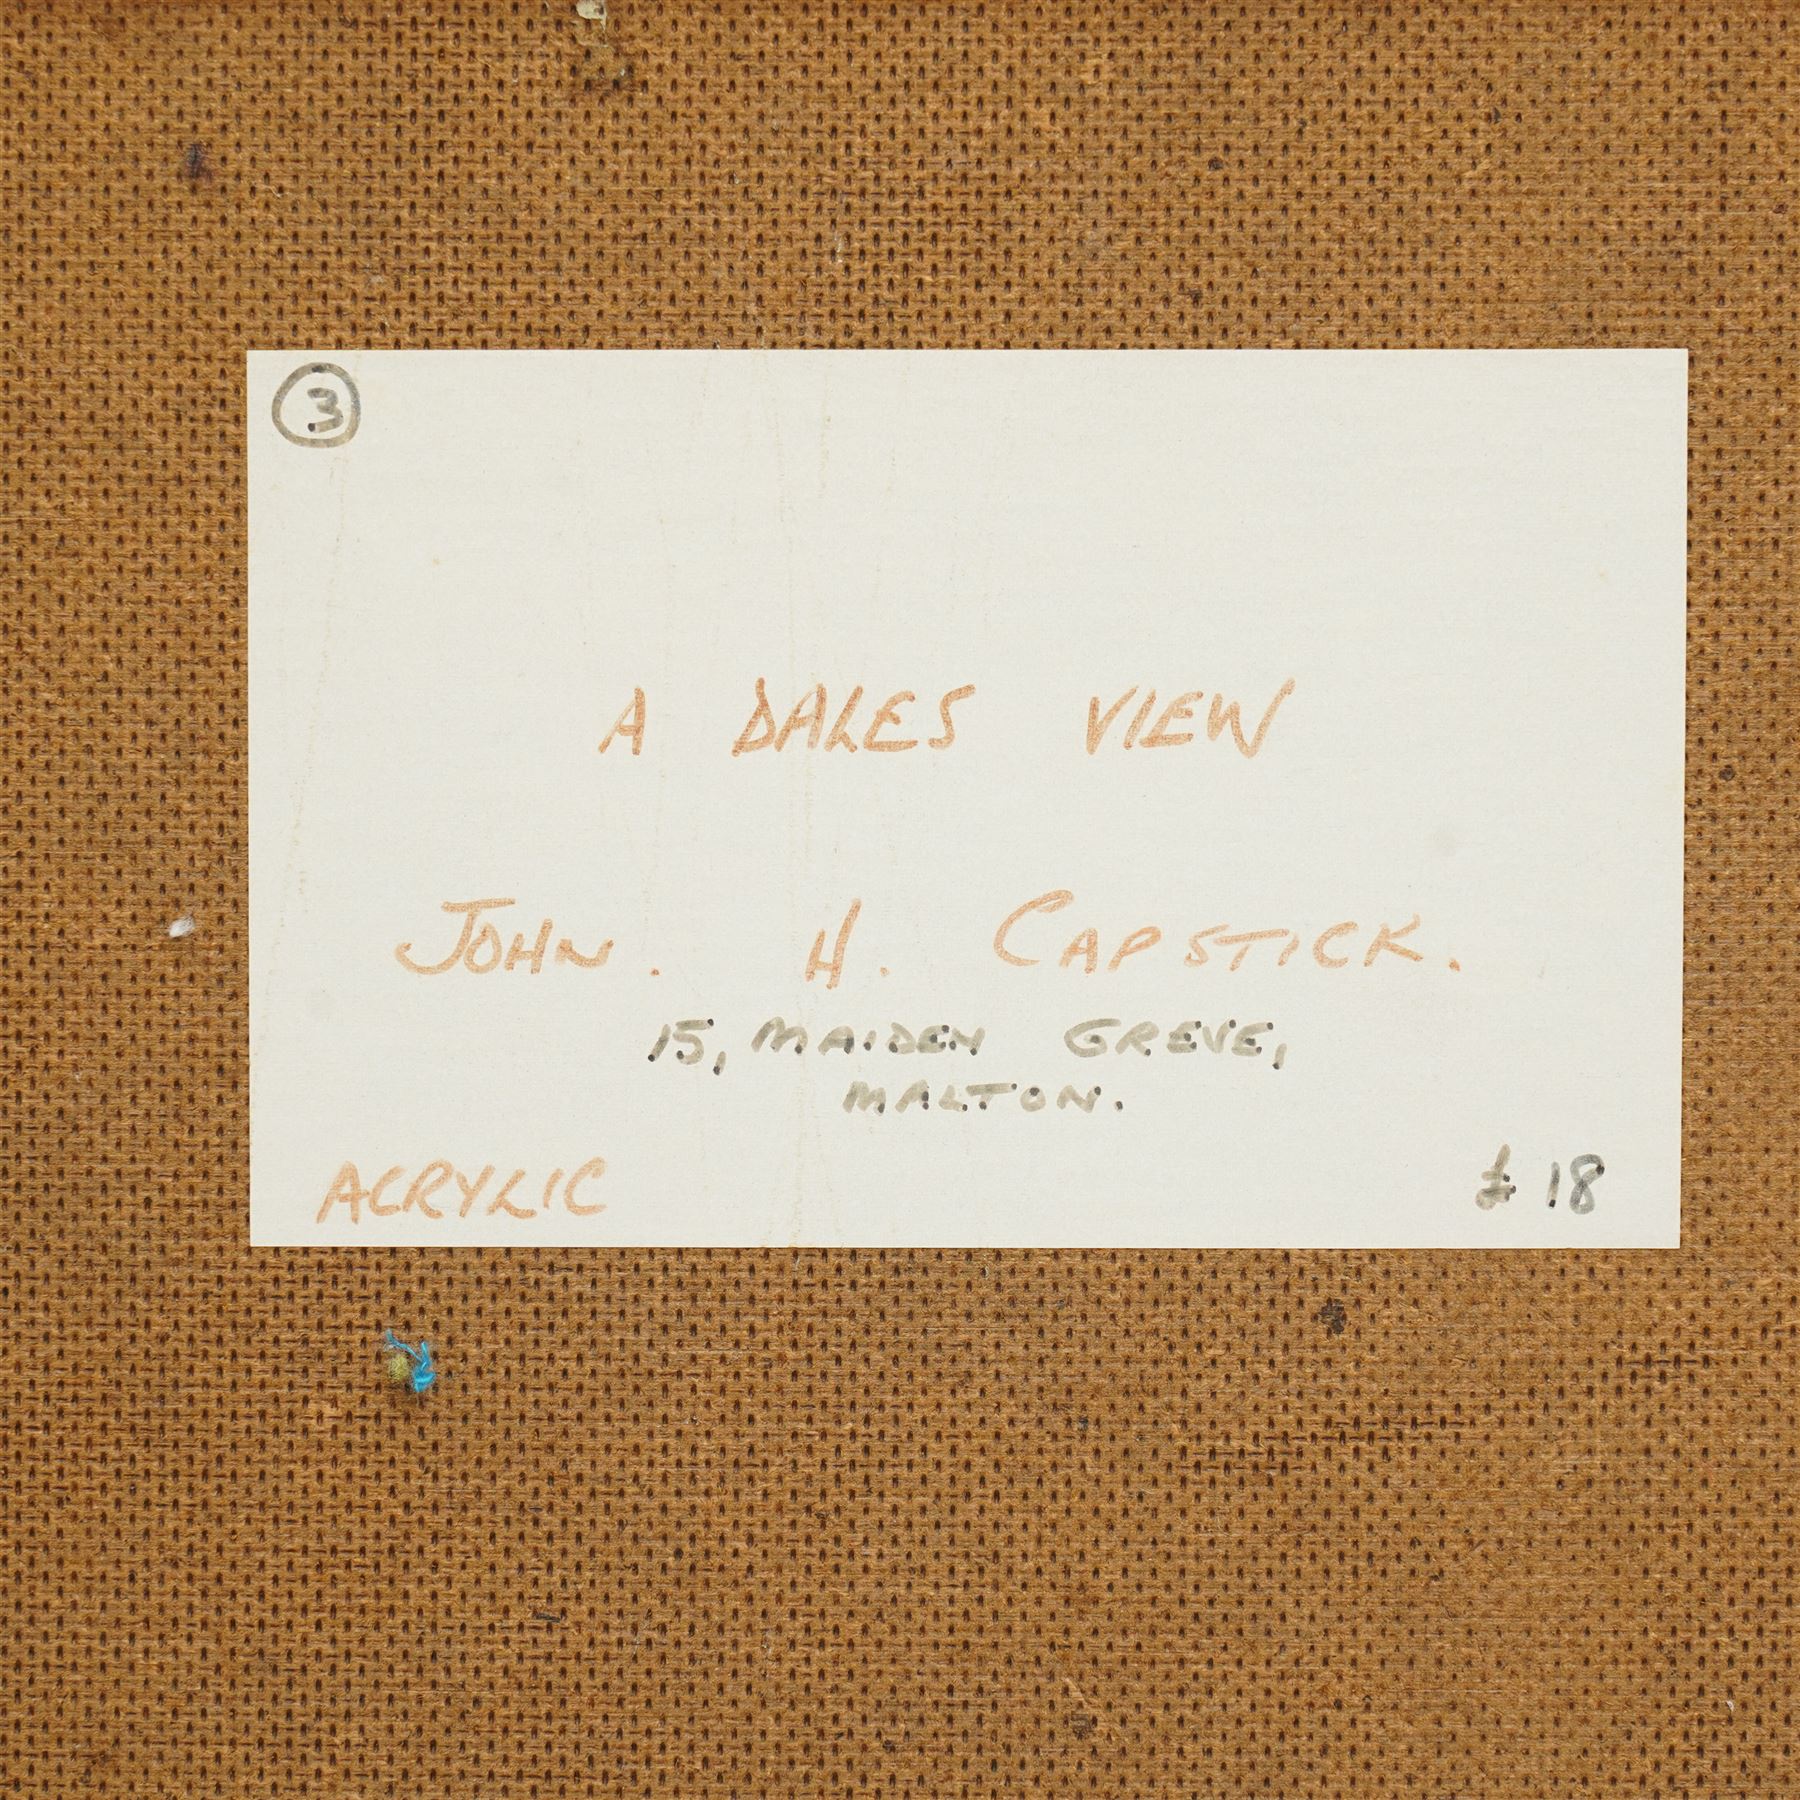 3
A DALES VIEW
JOHN. H. CAPSTICK.
15, MAIDEN GREVE,
MALTON.
ACRYLIC £18